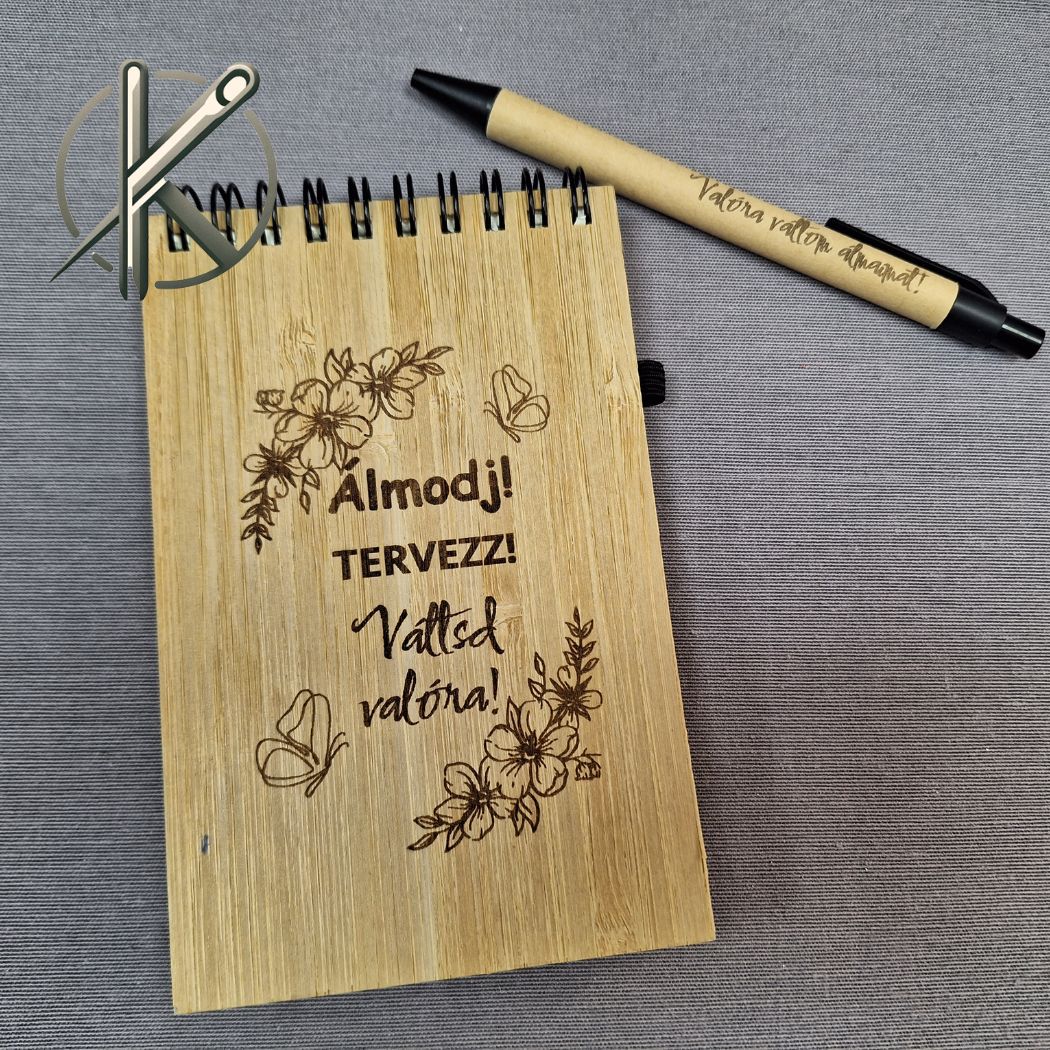 Valóra váltom álmaimat!
Álmodj!
TERVEZZ!
Váltsd
valóra!